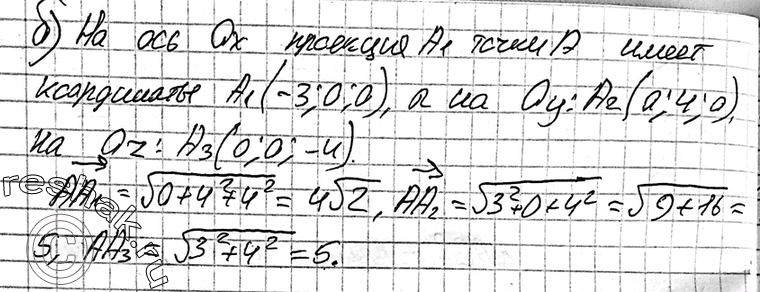 б) На ось Ox проекция A₁ точки A имеет
координаты A₁(-3; 0; 0), а на Oy: A₂(0; 4; 0),
на Oz: A₃(0; 0; -4).
AA₁ = √(0+4²+4²) = 4√2, AA₂ = √(3²+0+4²) = √(9+16) =
5, AA₃ = √(3²+4²) = 5.
reshak.ru